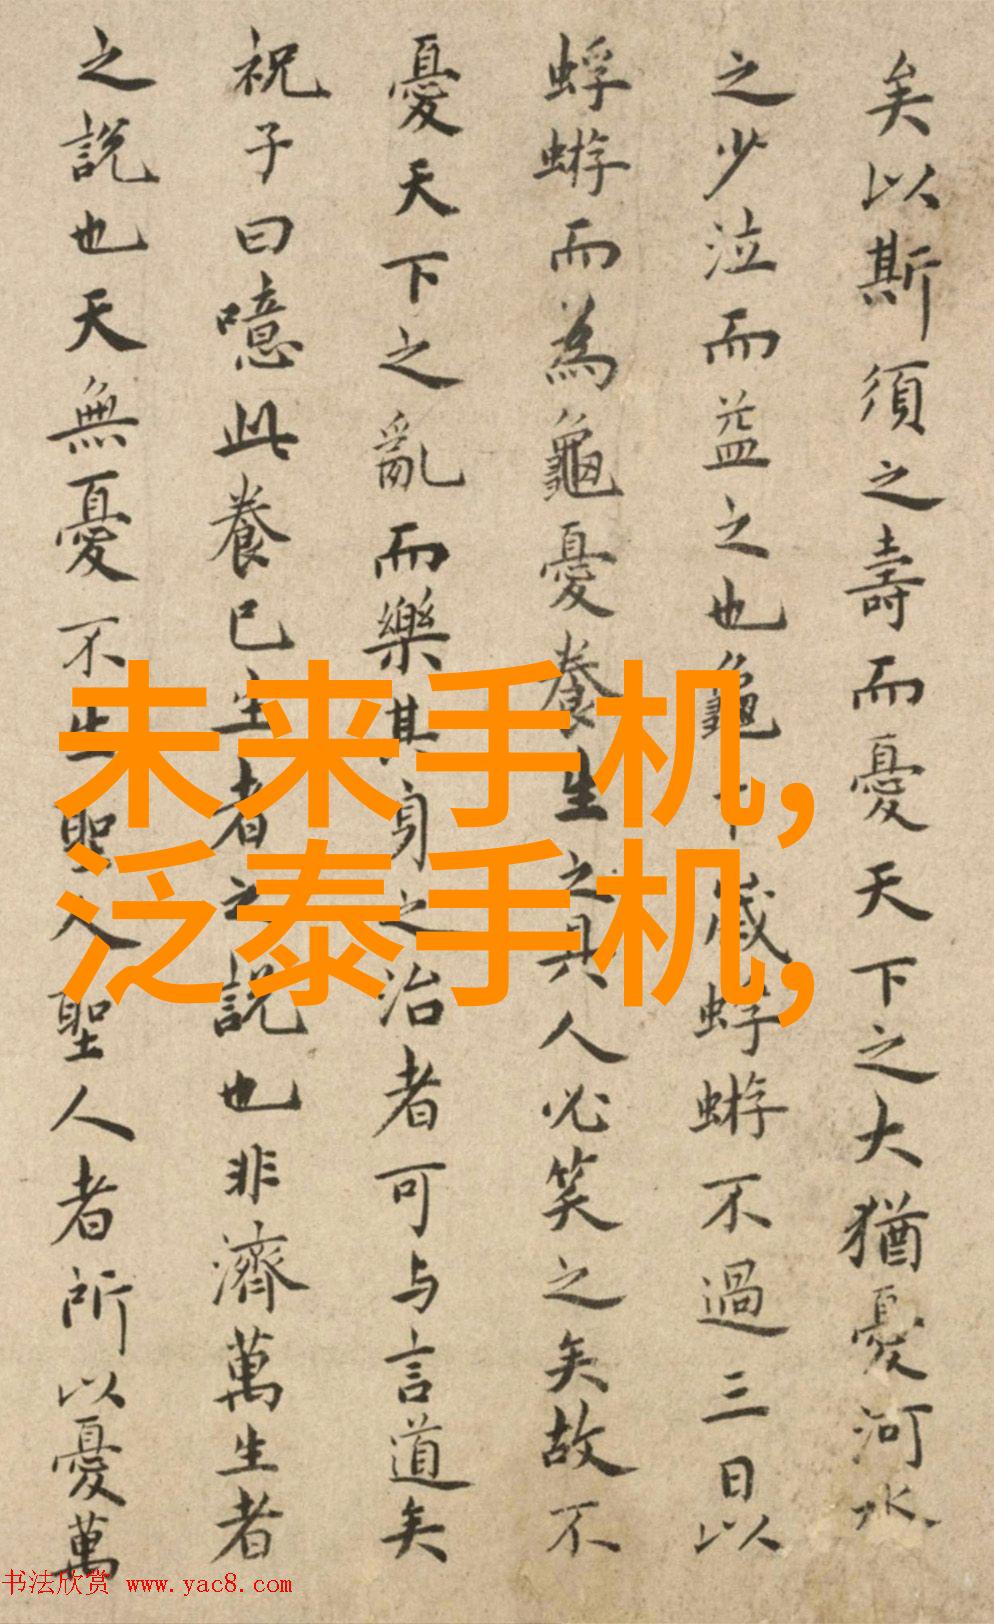 矣以斯須之壽而憂天下之大猶憂河水
之少泣而益之也龜千歲蜉蝣不過三日以
蜉蝣而為龜憂養生之具人必笑之矣故不
憂天下之亂而樂其身之治者可与言道矣
祝子曰噫此養己生者之說也非濟萬生者
之說也天無憂不生聖人聖人者所以憂萬
未来手机,
泛泰手机,
书法欣赏 www.yac8.com